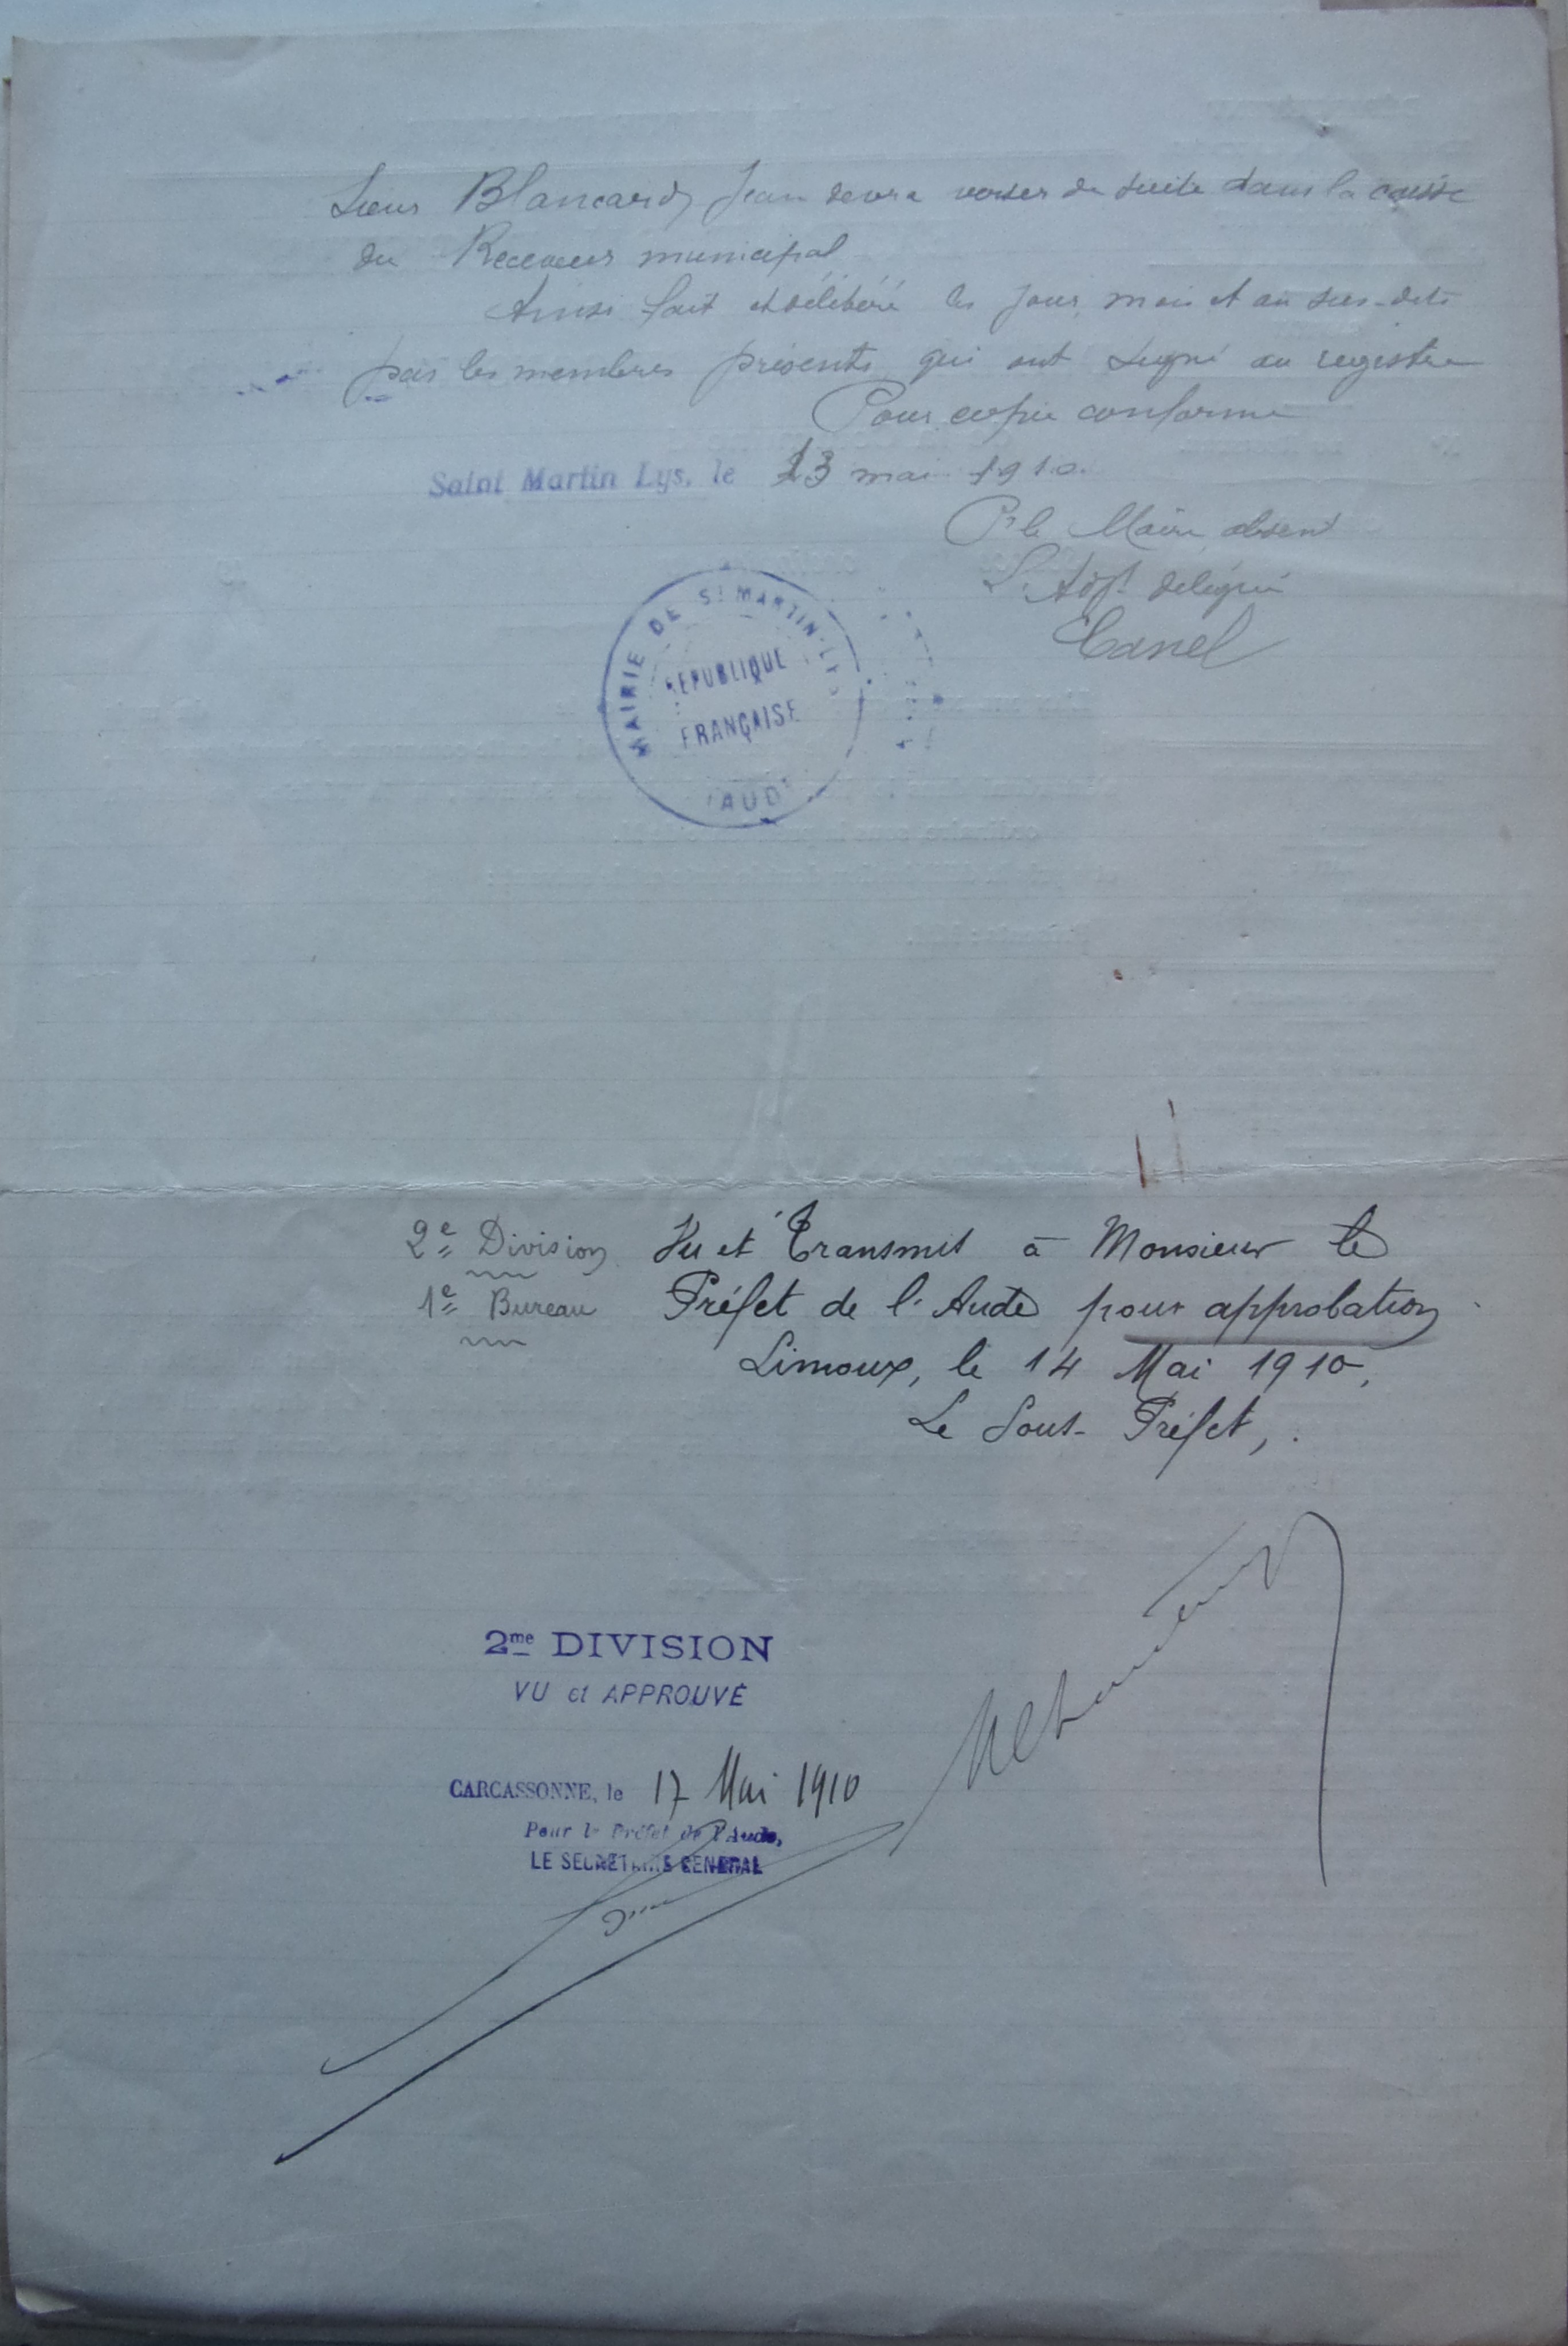 Sieur Blancard, Jean devra verser de suite dans la caisse
du Receveur municipal
Ainsi fait et délibéré les jour, mois et an sus-dits
par les membres présents qui ont signé au registre
Pour copie conforme
Saint Martin Lys, le 13 mai 1910.
Pr le Maire absent
L'Adjt délégué
Canel
MAIRIE DE St MARTIN-LYS
RÉPUBLIQUE
FRANÇAISE
AUDE
2e Division Vu et Transmis à Monsieur le
1e Bureau Préfet de l'Aude pour approbation
Limoux, le 14 Mai 1910,
Le Sous-Préfet,
2me DIVISION
VU et APPROUVÉ
CARCASSONNE, le 17 Mai 1910
Pour le Préfet de l'Aude,
LE SECRÉTAIRE GÉNÉRAL